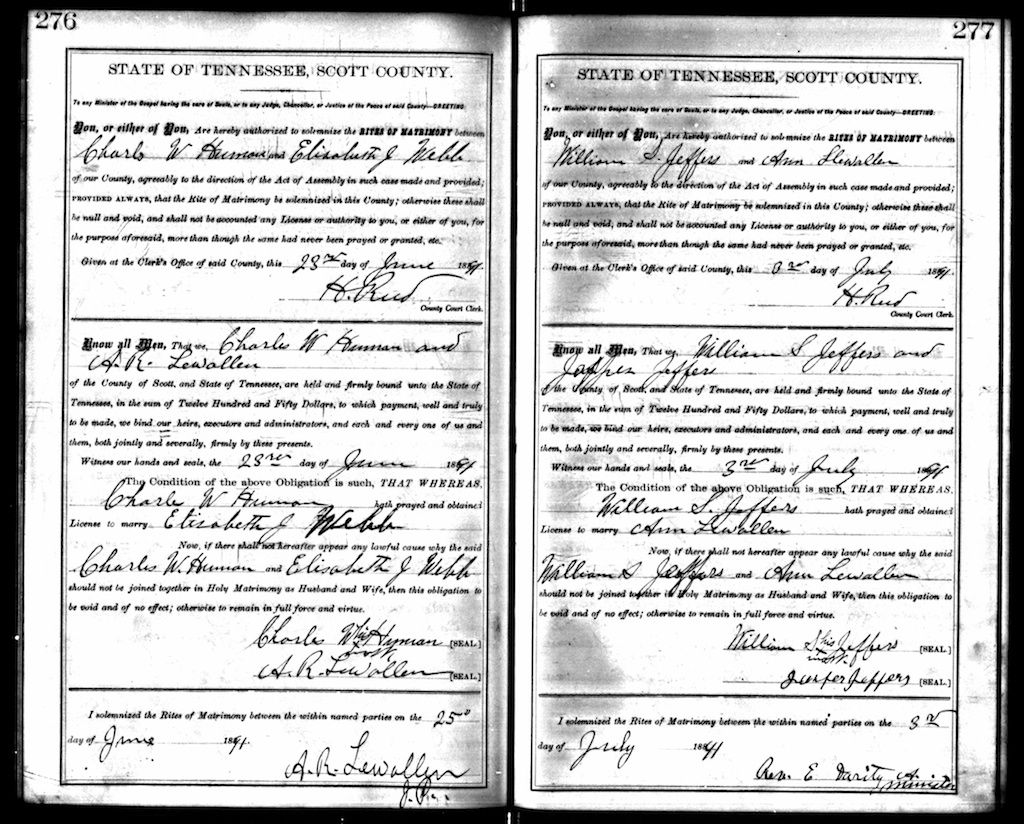 276
STATE OF TENNESSEE, SCOTT COUNTY.
To any Minister of the Gospel having the care of Souls, or to any Judge, Chancellor, or Justice of the Peace of said County—GREETING:
You, or either of You, Are hereby authorized to solemnize the RITES OF MATRIMONY between
Charls W Human and Elisabeth J Webb
of our County, agreeably to the direction of the Act of Assembly in such case made and provided;
PROVIDED ALWAYS, that the Rite of Matrimony be solemnized in this County; otherwise these shall
be null and void, and shall not be accounted any License or authority to you, or either of you, for
the purpose aforesaid, more than though the same had never been prayed or granted, etc.
Given at the Clerk's Office of said County, this 23rd day of June 1891
H. Reed
County Court Clerk.
Know all Men, That we, Charles W Human and
A. R. Lewallen
of the County of Scott, and State of Tennessee, are held and firmly bound unto the State of
Tennessee, in the sum of Twelve Hundred and Fifty Dollars, to which payment, well and truly
to be made, we bind our heirs, executors and administrators, and each and every one of us and
them, both jointly and severally, firmly by these presents.
Witness our hands and seals, the 23rd day of June 1891
The Condition of the above Obligation is such, THAT WHEREAS,
Charls W Human hath prayed and obtained
License to marry Elisabeth J Webb
Now, if there shall not hereafter appear any lawful cause why the said
Charles W. Human and Elisabeth J Webb
should not be joined together in Holy Matrimony as Husband and Wife, then this obligation to
be void and of no effect; otherwise to remain in full force and virtue.
Charles W his Hyman [SEAL.]
x mark
A. R. Lewallen [SEAL.]
I solemnized the Rites of Matrimony between the within named parties on the 25"
day of June 1891.
A. R. Lewallen
J. P.
277
STATE OF TENNESSEE, SCOTT COUNTY.
To any Minister of the Gospel having the care of Souls, or to any Judge, Chancellor, or Justice of the Peace of said County—GREETING:
You, or either of You, Are hereby authorized to solemnize the RITES OF MATRIMONY between
William S. Jeffers and Ann Llewallen
of our County, agreeably to the direction of the Act of Assembly in such case made and provided;
PROVIDED ALWAYS, that the Rite of Matrimony be solemnized in this County; otherwise these shall
be null and void, and shall not be accounted any License or authority to you, or either of you, for
the purpose aforesaid, more than though the same had never been prayed or granted, etc.
Given at the Clerk's Office of said County, this 3rd day of July 1891.
H. Reed
County Court Clerk.
Know all Men, That we, William S Jeffers and
Jeffers
of the County of Scott, and State of Tennessee, are held and firmly bound unto the State of
Tennessee, in the sum of Twelve Hundred and Fifty Dollars, to which payment, well and truly
to be made, we bind our heirs, executors and administrators, and each and every one of us and
them, both jointly and severally, firmly by these presents.
Witness our hands and seals, the 3rd day of July 1891
The Condition of the above Obligation is such, THAT WHEREAS,
William S. Jeffers hath prayed and obtained
License to marry Ann Lewallen
Now, if there shall not hereafter appear any lawful cause why the said
William S Jeffers and Ann Lewallen
should not be joined together in Holy Matrimony as Husband and Wife, then this obligation to
be void and of no effect; otherwise to remain in full force and virtue.
William S his Jeffers [SEAL.]
x mark
Jeffers [SEAL.]
I solemnized the Rites of Matrimony between the within named parties on the 3rd
day of July 1891
Rev. E Darity A.
minister